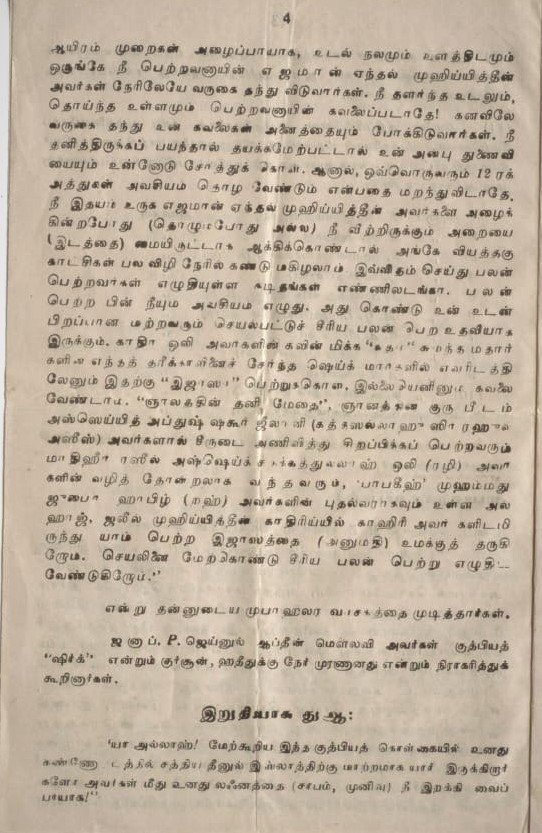 4
ஆயிரம் முறைகள் அழைப்பாயாக, உடல் நலமும் உளத்திடமும்
ஒருங்கே நீ பெற்றவனாயின் எஜமான் ஏந்தல் முஹிய்யித்தீன்
அவர்கள் நேரிலேயே வருகை தந்து விடுவார்கள். நீ தளர்ந்த உடலும்,
தொய்ந்த உள்ளமும் பெற்றவனாயின் கவலைப்படாதே! கனவிலே
வருகை தந்து உன் கவலைகள் அனைத்தையும் போக்கிடுவார்கள். நீ
தனித்திருக்கப் பயந்தால் தயக்கமேற்பட்டால் உன் அன்பு துணைவி
யையும் உன்னோடு சேர்த்துக் கொள். ஆனால், ஒவ்வொருவரும் 12 ரக்
அத்துகள் அவசியம் தொழ வேண்டும் என்பதை மறந்துவிடாதே.
நீ இதயம் உருக எஜமான் ஏந்தல் முஹிய்யித்தீன் அவர்களை அழைக்
கின்றபோது (தொழும்போது அல்ல) நீ வீற்றிருக்கும் அறையை
(இடத்தை) மையிருட்டாக ஆக்கிக்கொண்டால் அங்கே வியத்தகு
காட்சிகள் பலவிழி நேரில் கண்டு மகிழலாம். இவ்விதம் செய்து பலன்
பெற்றவர்கள் எழுதியுள்ள கடிதங்கள் எண்ணிலடங்கா. பலன்
பெற்ற பின் நீயும் அவசியம் எழுது. அது கொண்டு உன் உடன்
பிறப்பான மற்றவரும் செயல்பட்டுச் சீரிய பலன் பெற உதவியாக
இருக்கும். காதிர் ஒலி அவர்களின் கவின் மிக்க சுமந்த மதார்
களின் எந்தத் தரீக்காவினைச் சேர்ந்த ஷெய்க் மார்களில் எவரிடத்தி
லேனும் இதற்கு "இஜாஸா" பெற்றுக்கொள். இல்லையெனினும் கவலை
வேண்டாம். "ஞாலத்தின் தனி மேதை", ஞானத்தின் குரு பீடம்
அஸ்ஸெய்யித் அப்துஷ் ஷகூர் ஜீலானி (கத்தஸல்லாஹு ஸிர் ரஹுல்
அஸீஸ்) அவர்களால் கிருடை அணிவித்து சிறப்பிக்கப் பெற்றவரும்
மாதிஹிர் ரஸூல் அஷ்ஷெய்க் ஒலி (ரழி) அவர்
களின் வழித் தோன்றலாக வந்தவரும், 'பாபகீஹ்' முஹம்மது
ஜுபைர் ஹாபிழ் (றஹ்) அவர்களின் புதல்வராகவும் உள்ள அல்
ஹாஜ், ஜலீல் முஹிய்யித்தீன் காதிரிய்யில் காஹிரி அவர் களிடமி
ருந்து யாம் பெற்ற இஜாஸத்தை (அனுமதி) உமக்குத் தருகி
றோம். செயலினை மேற்கொண்டு சீரிய பலன் பெற்று எழுதிட
வேண்டுகிறோம்."
என்று தன்னுடைய முபாஹலா வாசகத்தை முடித்தார்கள்.
ஜனாப். P. ஜெய்னுல் ஆப்தீன் மௌலவி அவர்கள் குத்பியத்
"ஷிர்க்" என்றும் குர்ஆன், ஹதீதுக்கு நேர் முரணானது என்றும் நிராகரித்துக்
கூறினார்கள்.
இறுதியாக துஆ:
'யா அல்லாஹ்! மேற்கூறிய இந்த குத்பியத் கொள்கையில் உனது
கண்ணோட்டத்தில் சத்திய தீனுல் இஸ்லாத்திற்கு மாற்றமாக யார் இருக்கிறார்
களோ அவர்கள் மீது உனது லஃனத்தை (சாபம், முனிவு) நீ இறக்கி வைப்
பாயாக!"